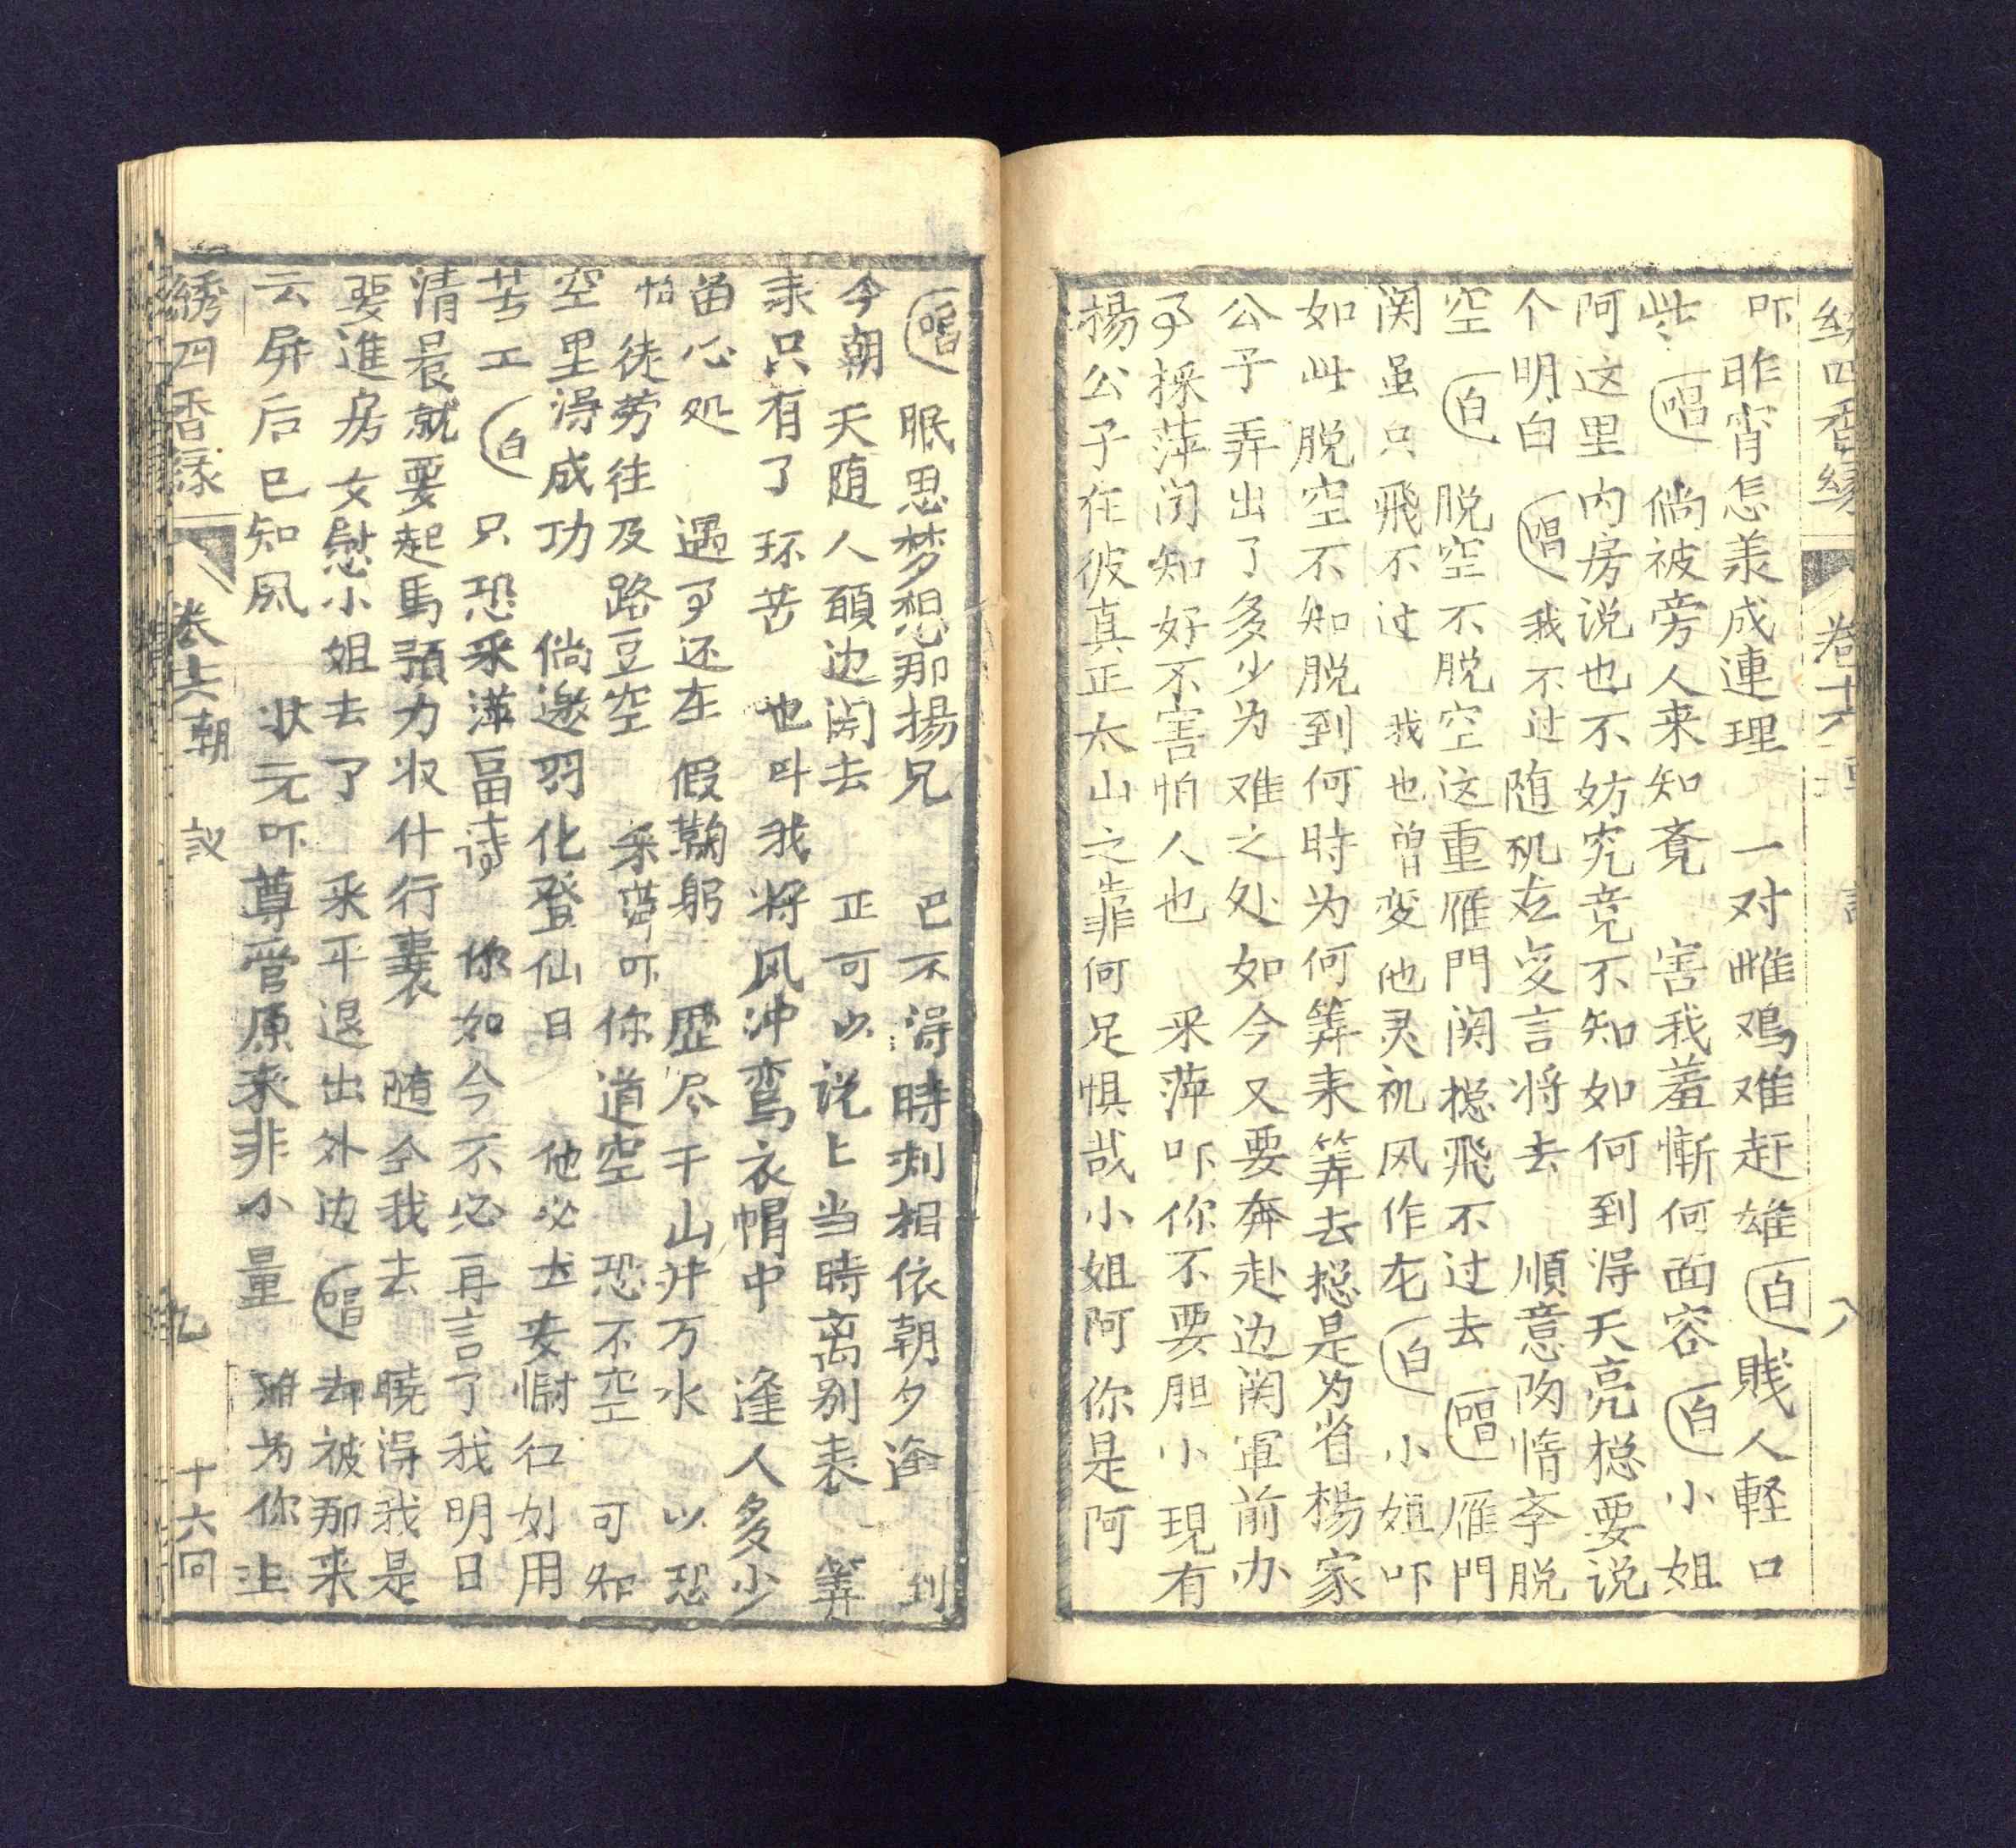 绣四香緣 卷十六 八
吓 昨宵怎羕成連理 一对雌鸡难赶雄 白 賤人軽口
些 唱 倘被旁人来知覔 害我羞慚何面容 白 小姐
阿这里内房说也不妨究竟不知如何到得天亮揔要说
个明白 唱 我不过随机应变言将去 順意防惰李脱
空 白 脱空不脱空这重雁門関揔飛不过去 唱 雁門
関虽只飛不过 我也曽变他灵机风作龙 白 小姐吓
如此脱空不知脱到何時为何筭来筭去揔是为省楊家
公子弄出了多少为难之处如今又要奔赴边関軍前办
事採萍闻知好不害怕人也 采萍吓你不要胆小現有
揚公子在彼真正太山之靠何足惧哉小姐阿你是阿
唱 眠思梦想那揚兄 巴不淂時刻相依朝夕逢 到
今朝天随人願边関去 正可以说上当時离别衷 筭
来只有了环苦 也叫我将风冲鸾衣帽中 逢人多少
留心处 遇事还在假鞠躬 歴尽千山并万水 以恐
怕徒劳往及路豆空 采萍吓你道空 恐不空 可知
空里淂成功 倘遂羽化登仙日 他必去安慰 如用
苦工 白 只恐采萍 你如今不必再言了我明日
清晨就要起馬預力収什行囊 随仝我去 暁得我是
要進房女慰小姐去了 采平退出外边 唱 却被那来
云屏后已知风 状元吓尊管原来非小量 难为你
綉四香緣 卷十六 朝 议 九 十六回